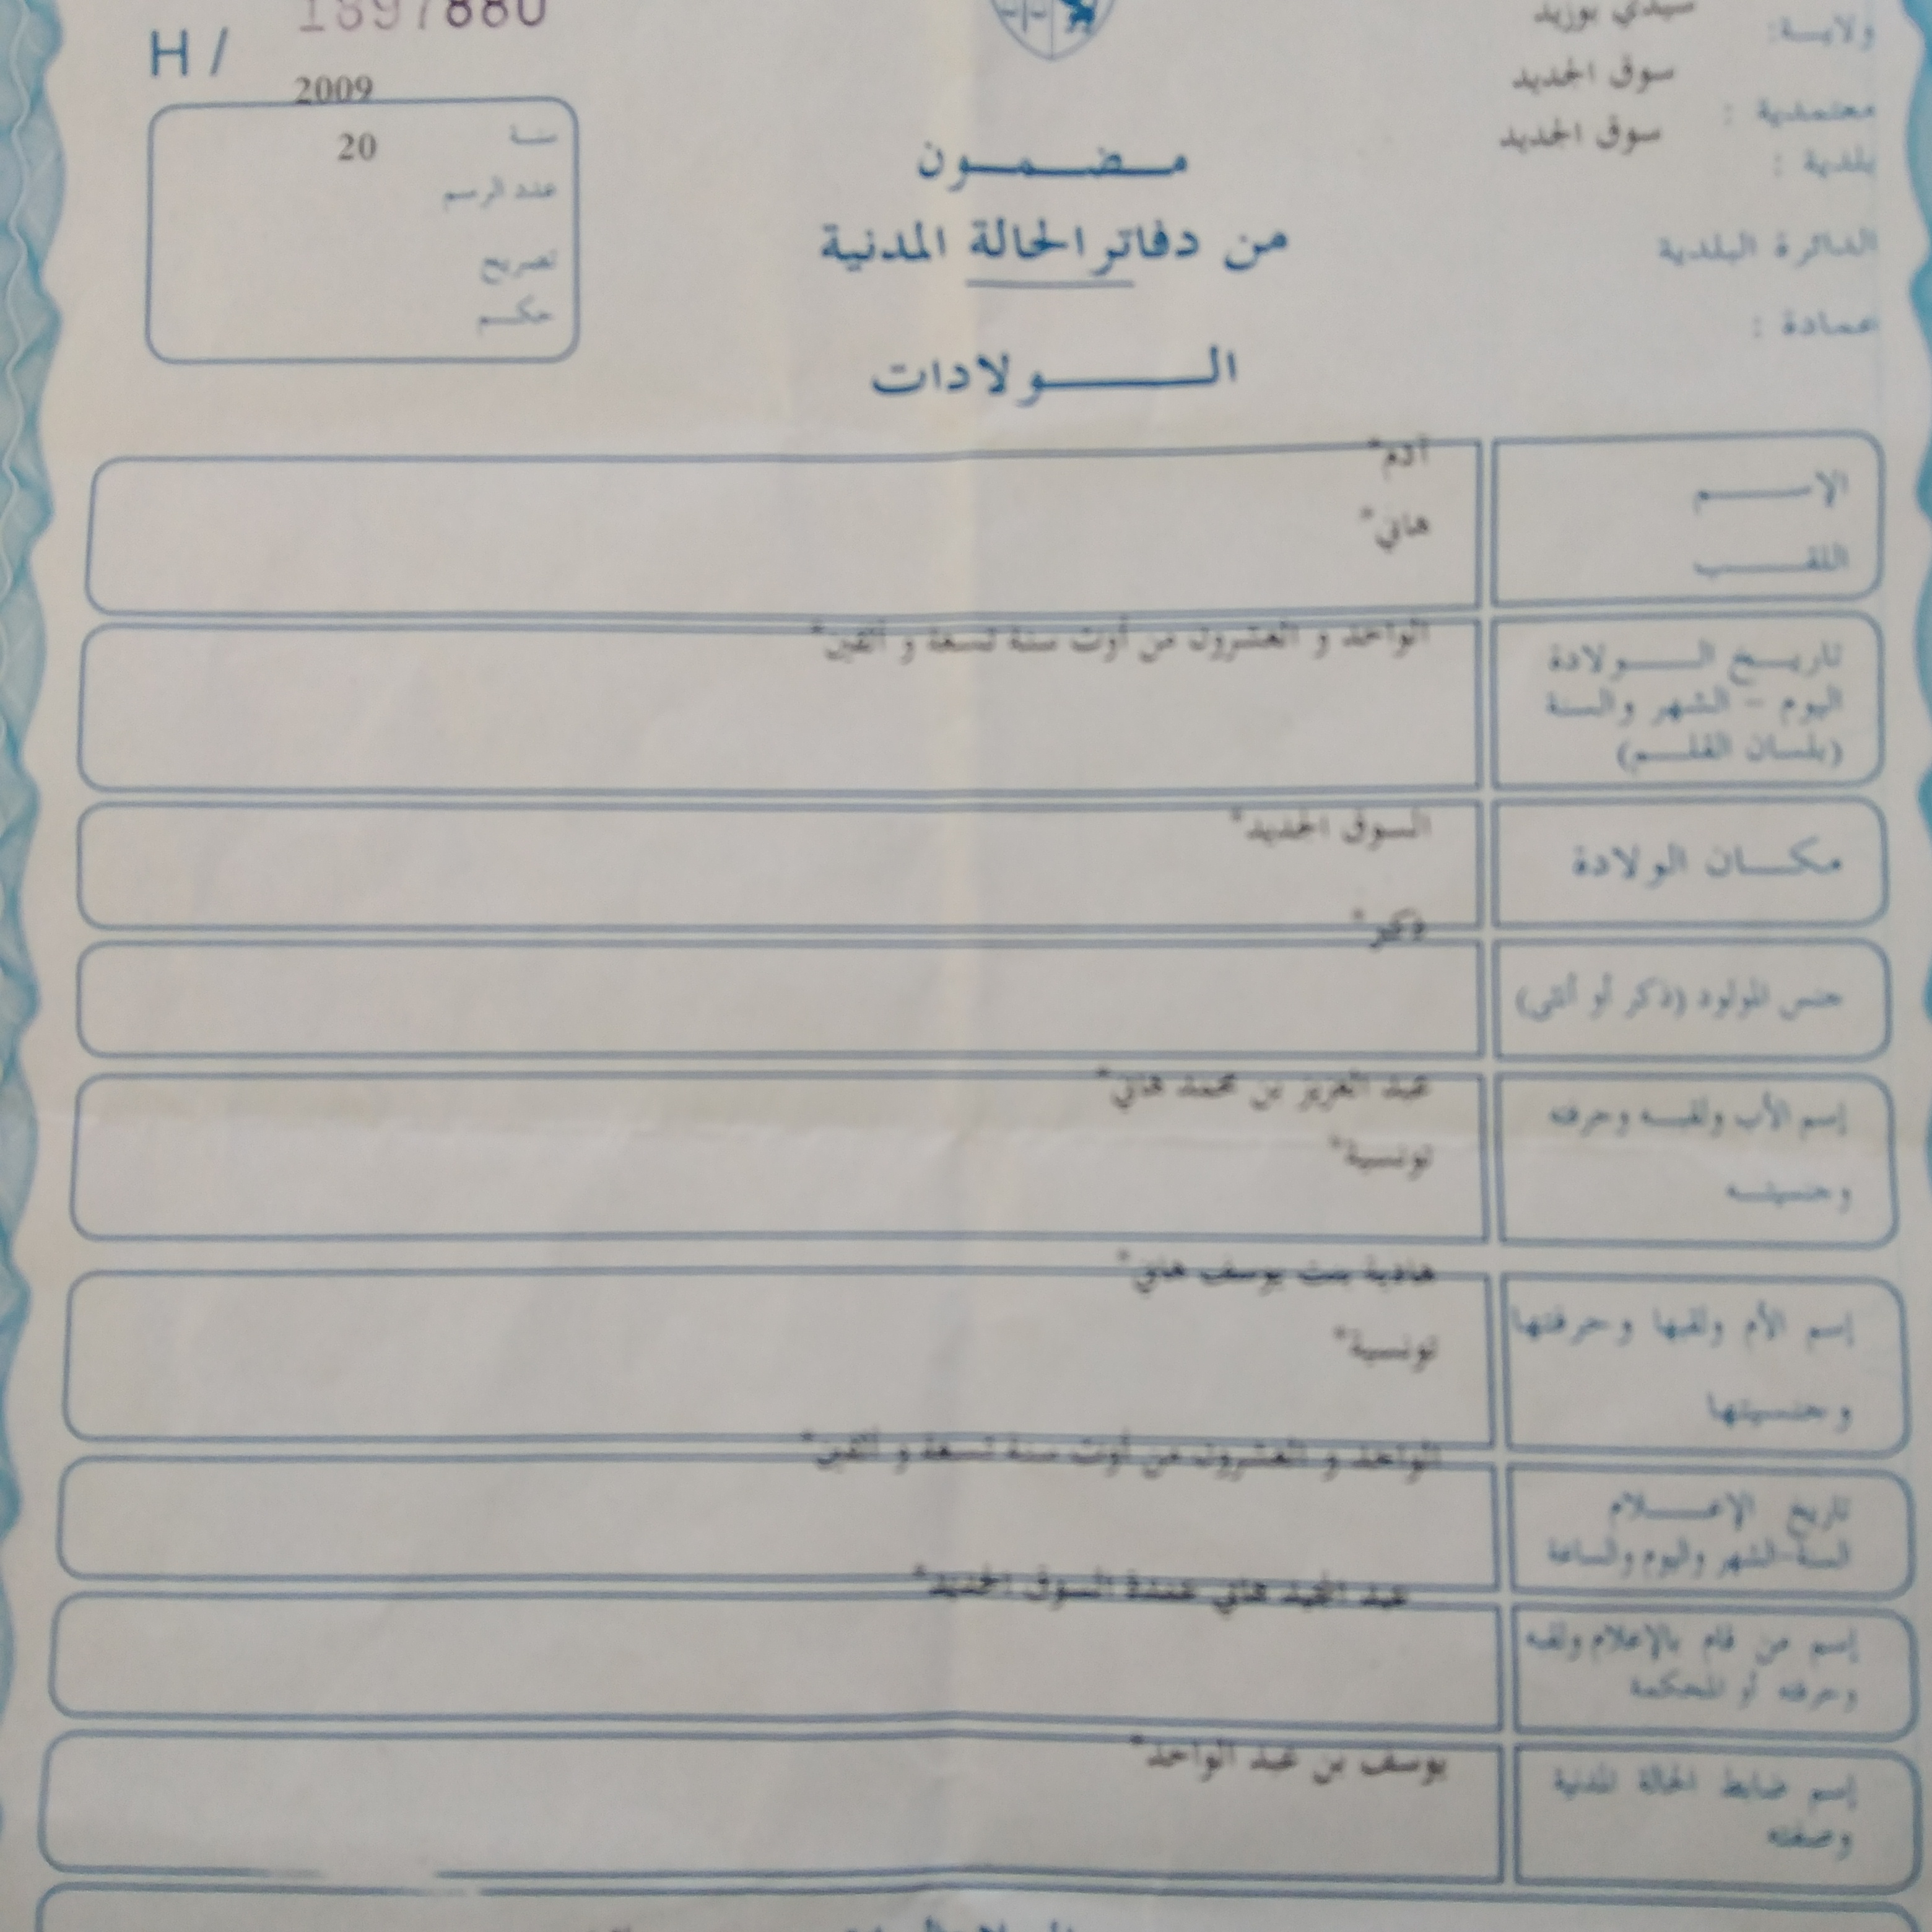 H / 1897880
ولاية: سيدي بوزيد
سوق الجديد
معتمدية :
سوق الجديد
بلدية :
الدائرة البلدية
عمادة :
2009
سنة
20
عدد الرسم
تصريح
حكم
مضمون
من دفاتر الحالة المدنية
الولادات
آدم*
الاسم
هاني*
اللقب
الواحد و العشرون من أوت سنة تسعة و ألفين*
تاريخ الولادة
اليوم - الشهر والسنة
(بلسان القلم)
السوق الجديد*
مكان الولادة
ذكر*
جنس المولود (ذكر أو أنثى)
عبد العزيز بن محمد هاني*
إسم الأب ولقبه وحرفته
تونسية*
وجنسيته
هادية بنت يوسف هاني*
إسم الأم ولقبها وحرفتها
تونسية*
وجنسيتها
الواحد و العشرون من أوت سنة تسعة و ألفين*
تاريخ الإعلام
السنة-الشهر واليوم والساعة
عبد المجيد هاني عمدة السوق الجديد*
إسم من قام بالإعلام ولقبه
وحرفته أو المحكمة
يوسف بن عبد الواحد*
إسم ضابط الحالة المدنية
وصفته